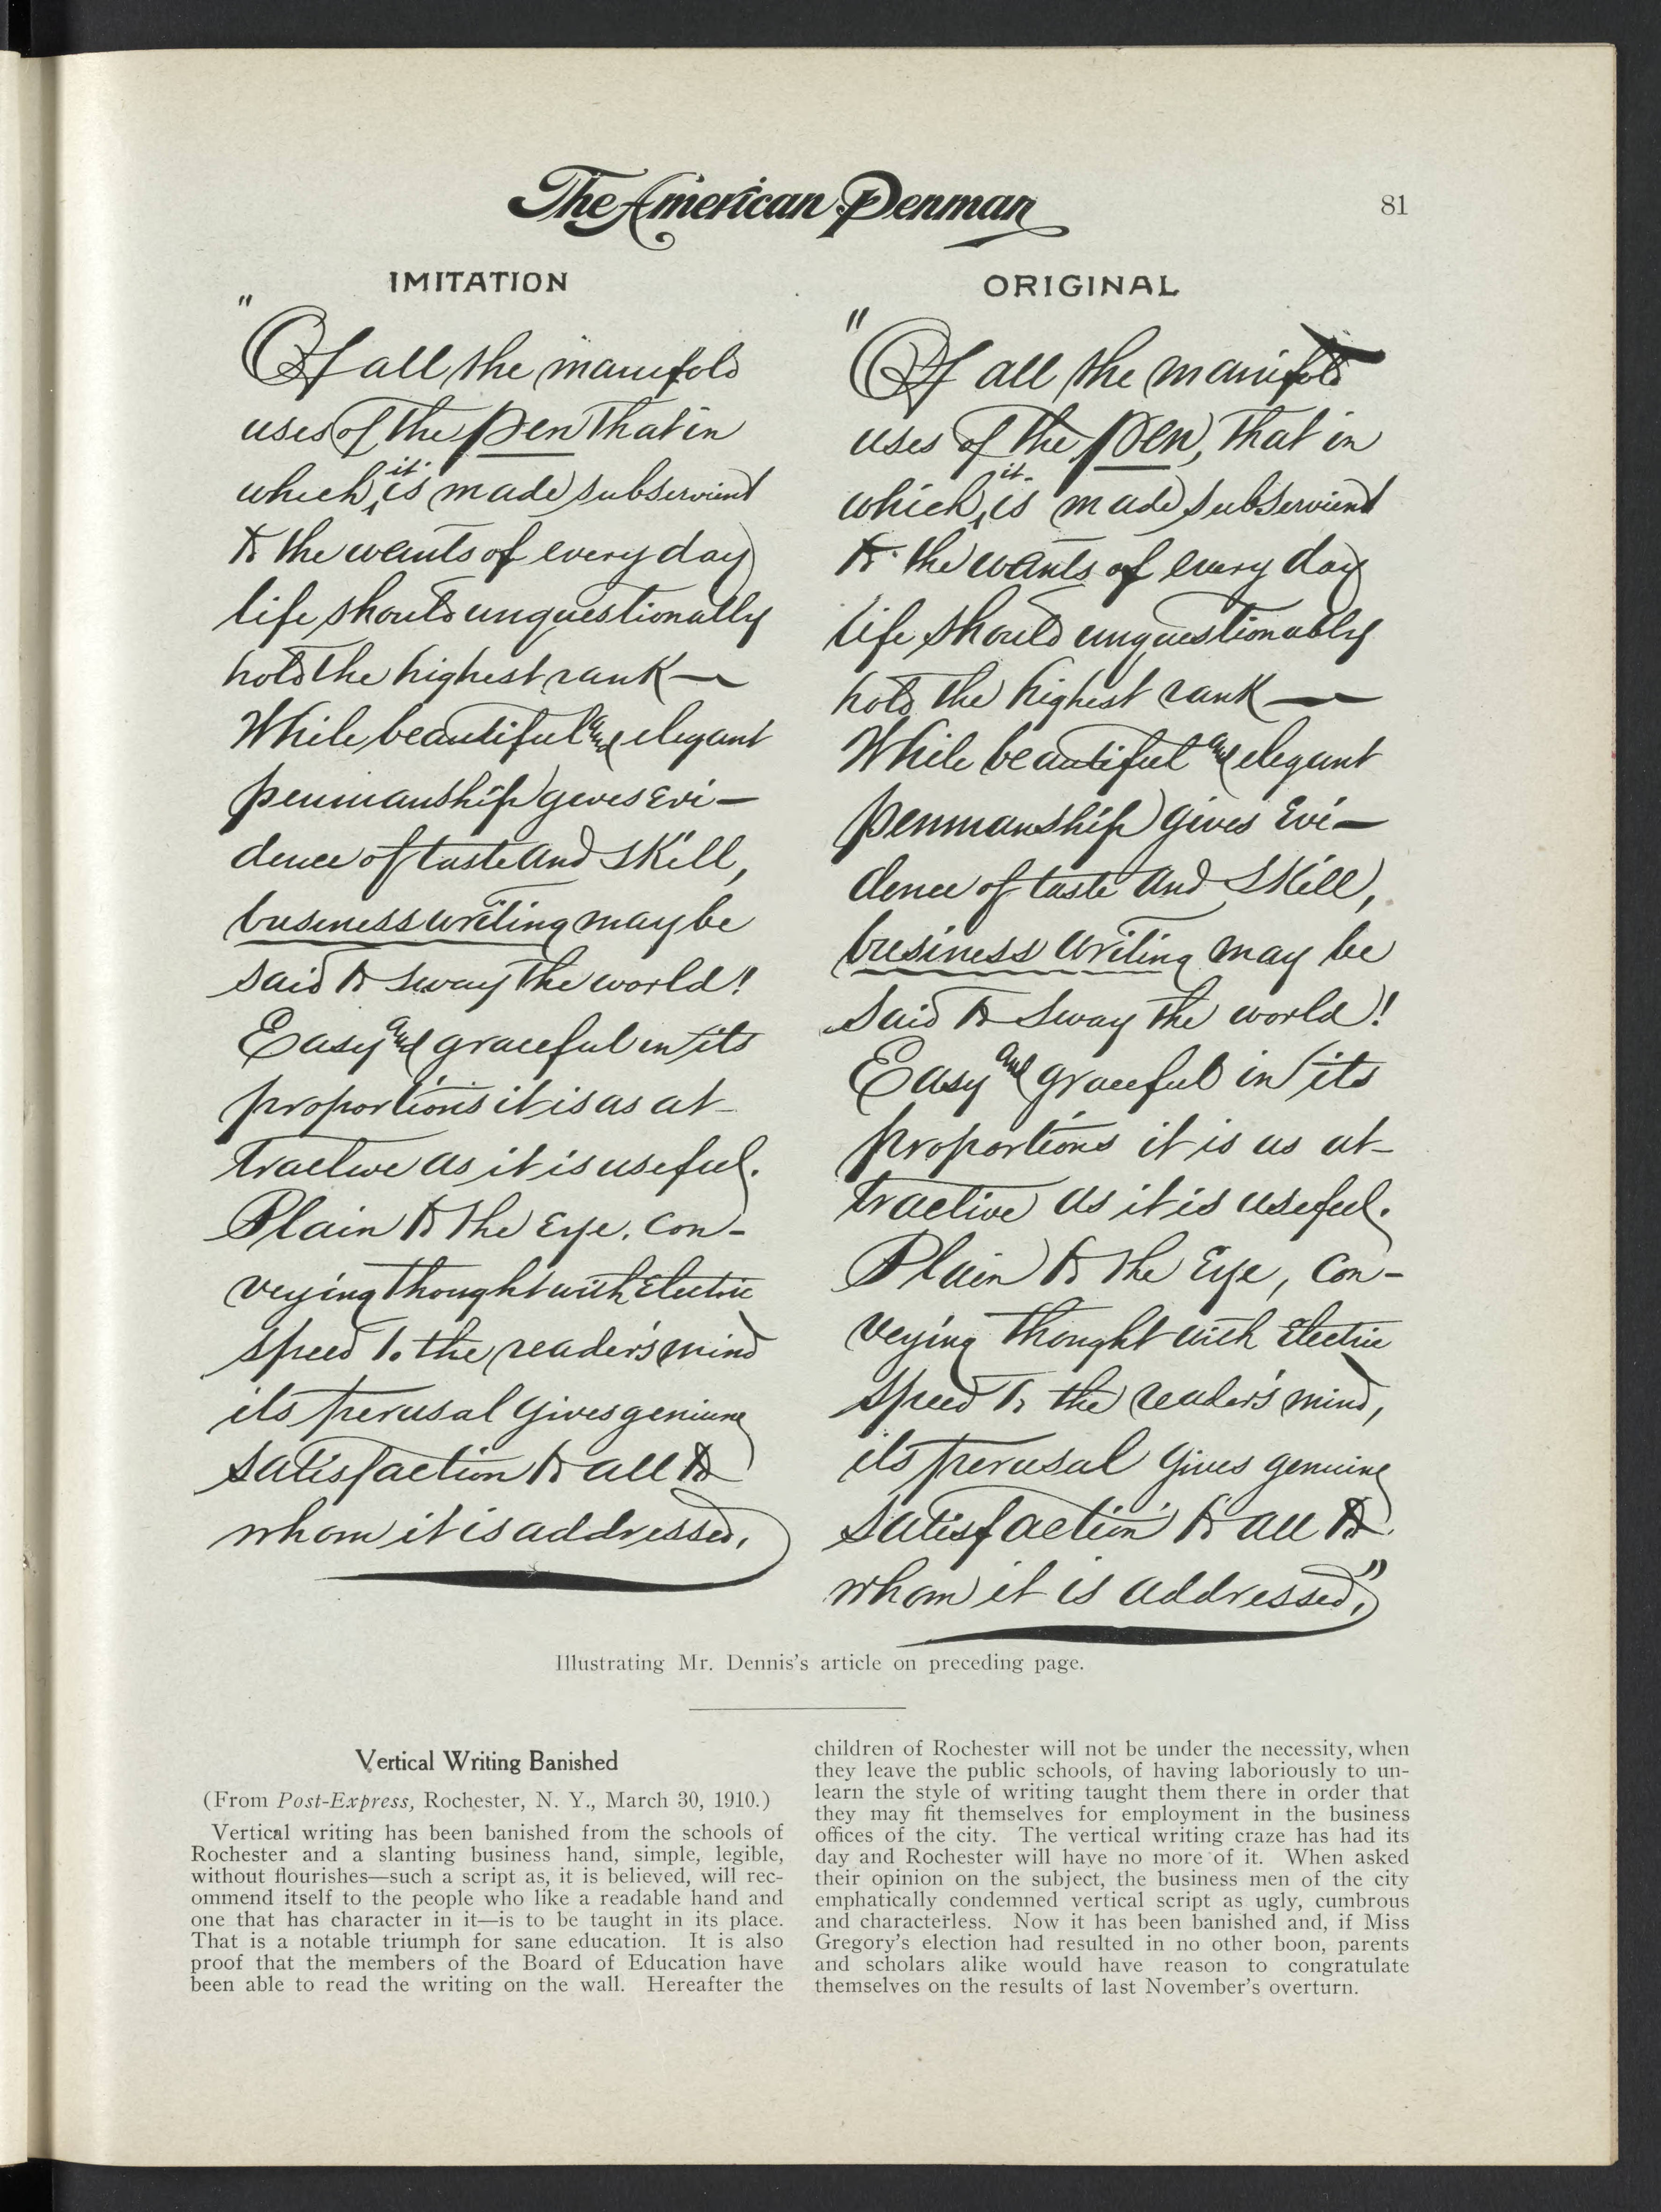 The American Penman
81
IMITATION
"Of all the manifold
uses of the Pen that in
it
which, is made subservient
to the wants of every day
life should unquestionally
hold the highest rank —
While beautiful and elegant
penmanship gives evi—
dence of taste and skill,
business writing may be
said to sway the world!
Easy and graceful in its
proportions it is as at-
tractive as it is useful.
Plain to the Eye, con-
veying thought with Electric
speed to the reader's mind
its perusal gives geniune
satisfaction to all to
whom it is addressed,
ORIGINAL
"Of all the manifold
uses of the Pen, that in
it
which, is made subservient
to the wants of every day
life should unquestionably
hold the highest rank —
While beautiful and elegant
penmanship gives Evi—
dence of taste and skill,
business writing may be
said to sway the world!
Easy and graceful in its
proportions it is as at-
tractive as it is useful.
Plain to the Eye, con-
veying thought with Electric
speed to the reader's mind,
its perusal gives genuine
satisfaction to all to
whom it is addressed,"
Illustrating Mr. Dennis's article on preceding page.
Vertical Writing Banished
(From Post-Express, Rochester, N. Y., March 30, 1910.)
Vertical writing has been banished from the schools of
Rochester and a slanting business hand, simple, legible,
without flourishes—such a script as, it is believed, will rec-
ommend itself to the people who like a readable hand and
one that has character in it—is to be taught in its place.
That is a notable triumph for sane education. It is also
proof that the members of the Board of Education have
been able to read the writing on the wall. Hereafter the
children of Rochester will not be under the necessity, when
they leave the public schools, of having laboriously to un-
learn the style of writing taught them there in order that
they may fit themselves for employment in the business
offices of the city. The vertical writing craze has had its
day and Rochester will have no more of it. When asked
their opinion on the subject, the business men of the city
emphatically condemned vertical script as ugly, cumbrous
and characterless. Now it has been banished and, if Miss
Gregory's election had resulted in no other boon, parents
and scholars alike would have reason to congratulate
themselves on the results of last November's overturn.